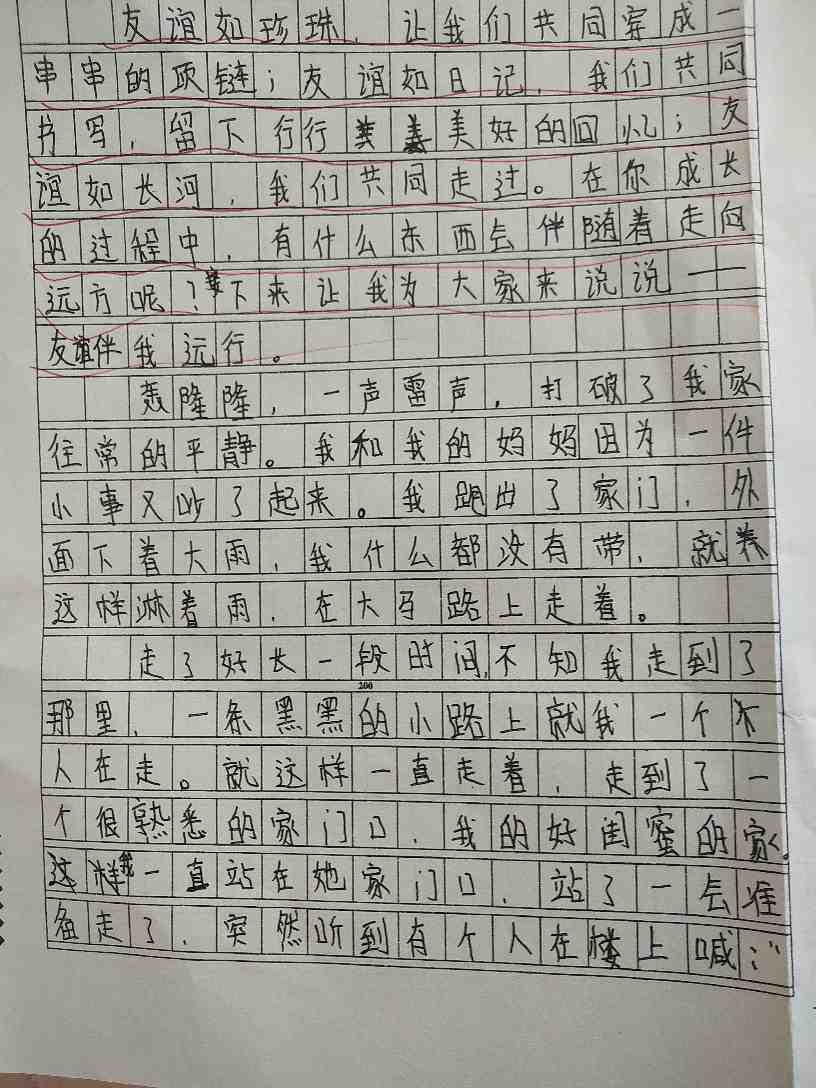 友谊如珍珠，让我们共同穿成一
串串的项链；友谊如日记，我们共同
书写，留下行行美好的回忆；友
谊如长河，我们共同走过。在你成长
的过程中，有什么东西会伴随着走向
远方呢？接下来让我为大家来说说——
友谊伴我远行。
轰隆隆，一声雷声，打破了我家
往常的平静。我和我的妈妈因为一件
小事又吵了起来。我跑出了家门，外
面下着大雨，我什么都没有带，就
这样淋着雨，在大马路上走着。
走了好长一段时间，不知我走到了
200
那里，一条黑黑的小路上就我一个
人在走。就这样一直走着，走到了一
个很熟悉的家门口，我的好闺蜜的家。
我一直站在她家门口，站了一会准
备走了，突然听到有个人在楼上喊：“